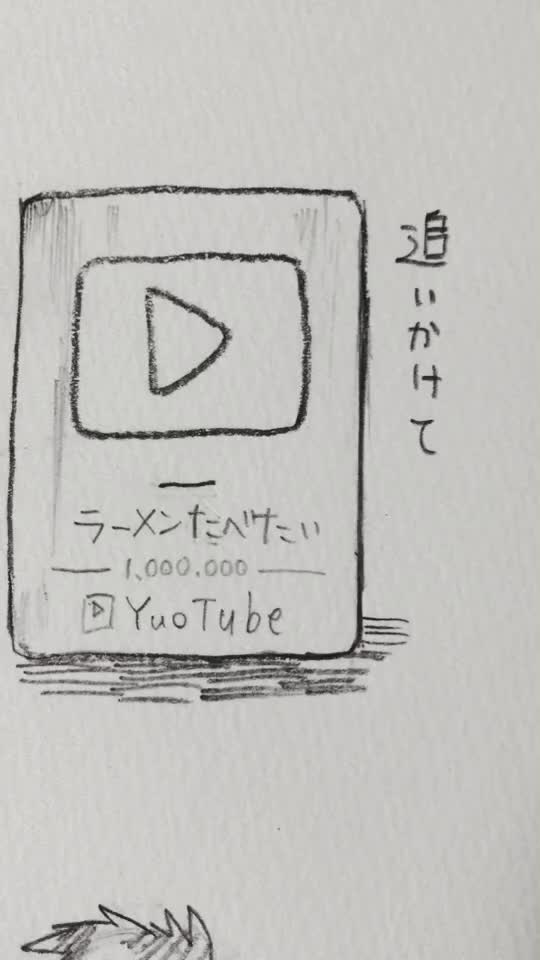 追いかけて
ラーメンたべたい
1,000,000
YuoTube